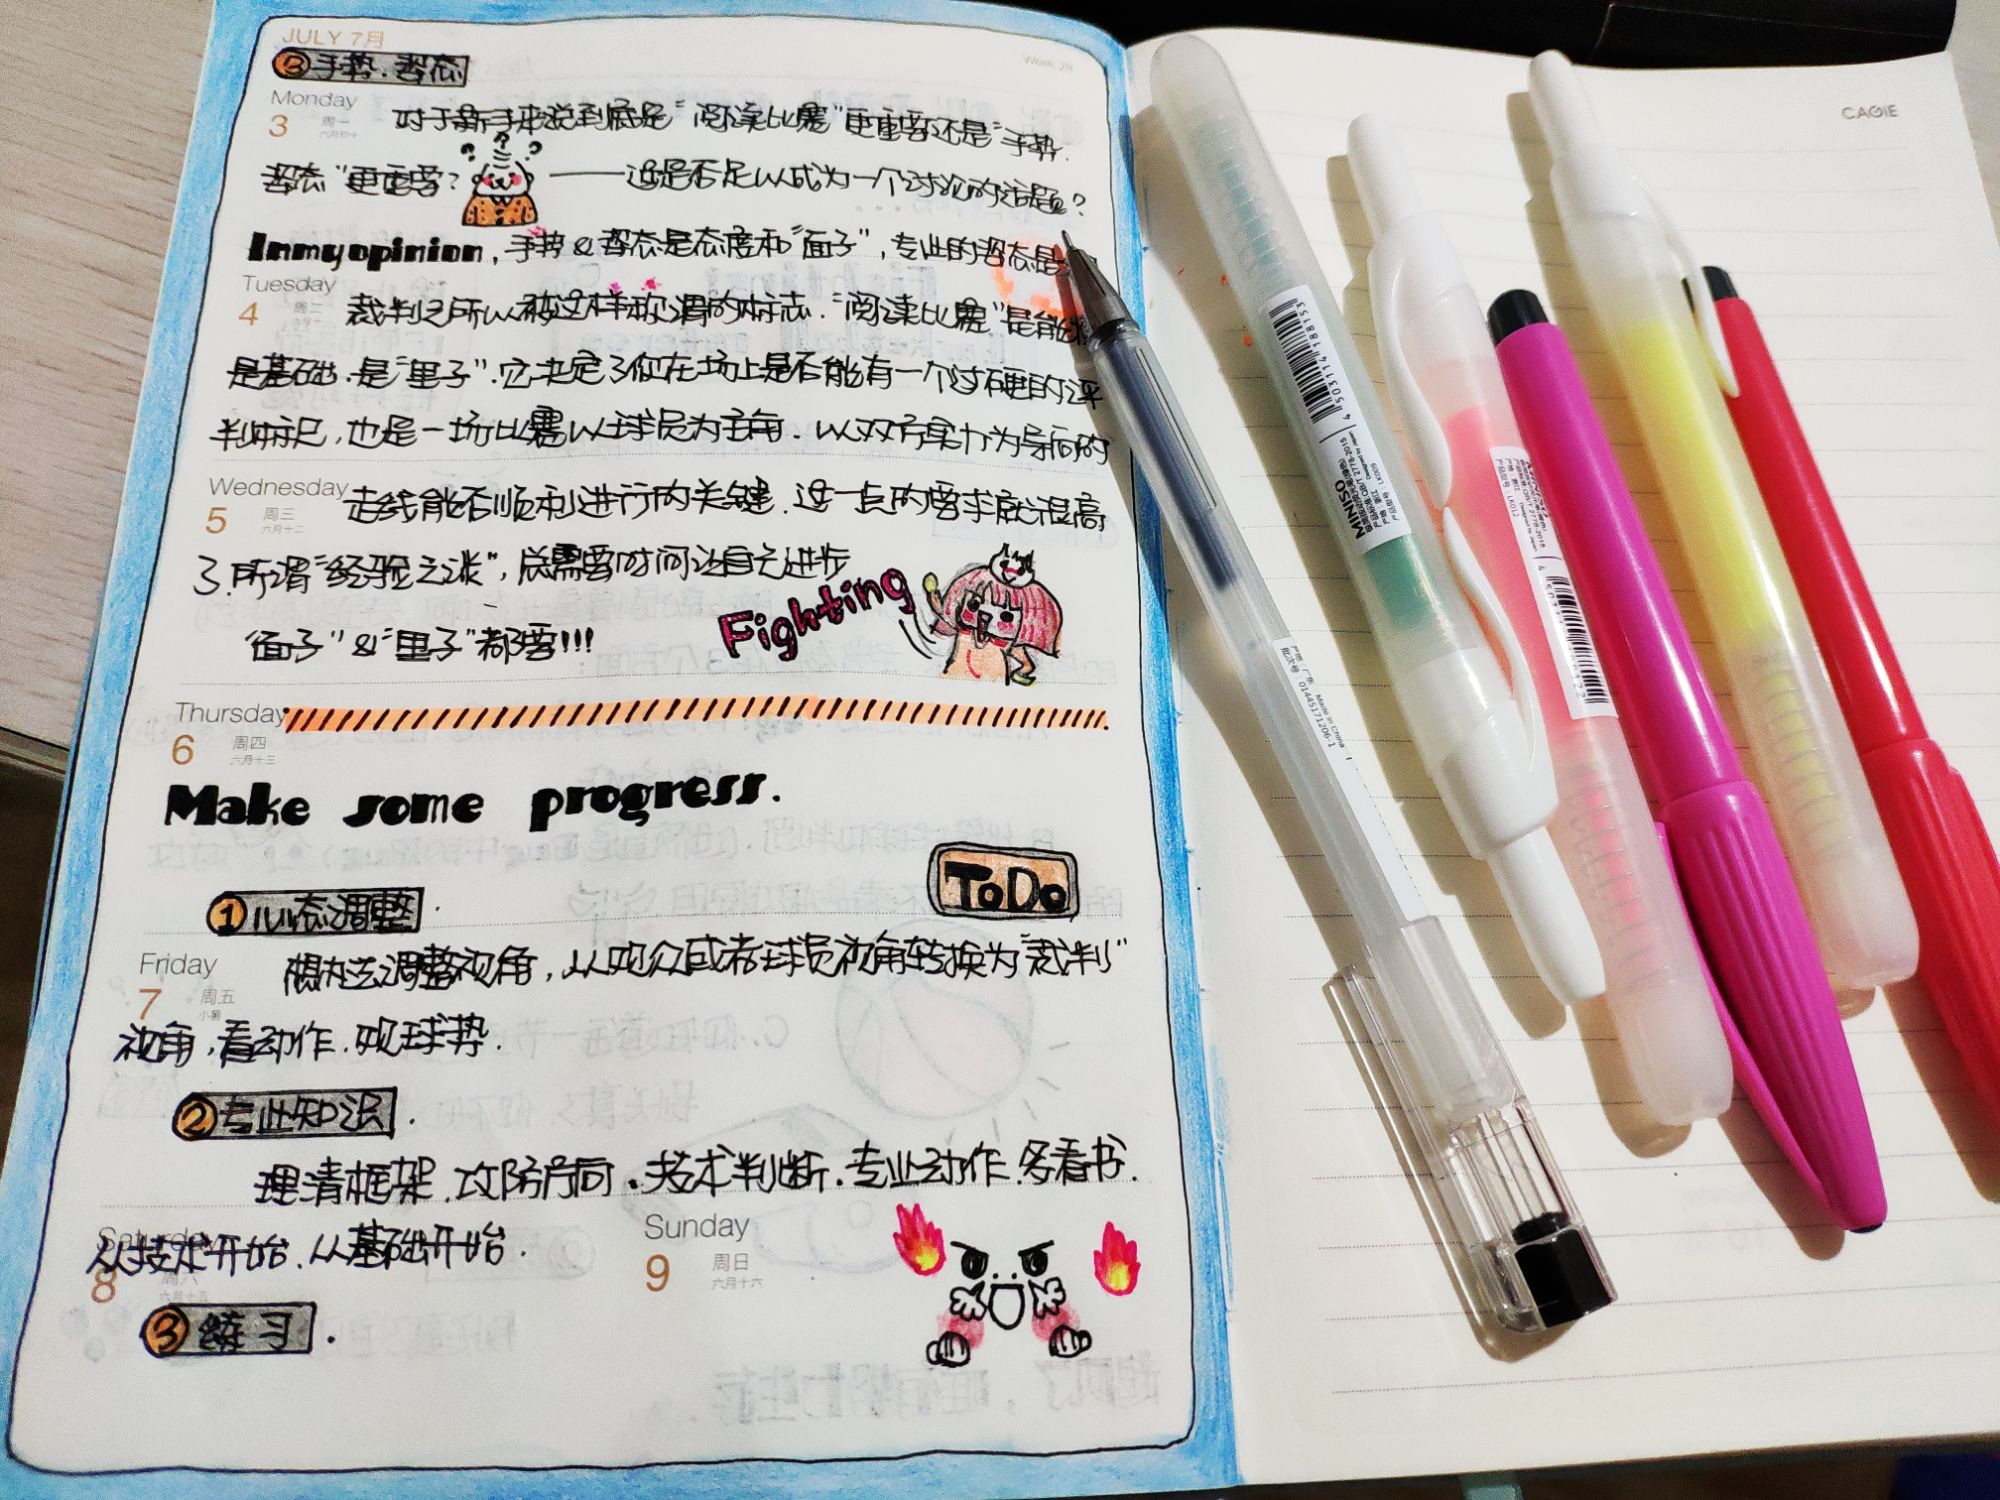 JULY 7月
Week 28
③手势.姿态
Monday
3
周一
对于新手来说到底是“阅读比赛”更重要还是“手势.
姿态”更重要?——这是否足以成为一个讨论的话题?
In my opinion,手势&姿态是态度和“面子”,专业的姿态是
Tuesday
4
周二
裁判之所以被这样称谓的标志.“阅读比赛”是能
是基础.是“里子”.它决定了你在场上是否能有一个过硬的评
判标尺,也是一场比赛以球员为主角.以双方实力为导向的
Wednesday
5
周三
六月十二
走线能否顺利进行的关键.这一点的要求就很高
了.所谓“经验之谈”,总需要时间沉自之进步
“面子”&“里子”都要!!!
Fighting
Thursday
6
周四
六月十三
Make some progress.
ToDo
①心态调整.
Friday
7
周五
小暑
想办法调整视角,从观众或者球员视角转换为“裁判”
视角,看动作.观球势.
②专业知识.
理清框架.攻防布局.技术判断.专业动作.多看书.
Saturday
8
周六
六月十五
从技术开始.从基础开始.
Sunday
9
周日
六月十六
③练习.
CAGIE
MINISO
4 503111 418815
Made in China
01445171206-1